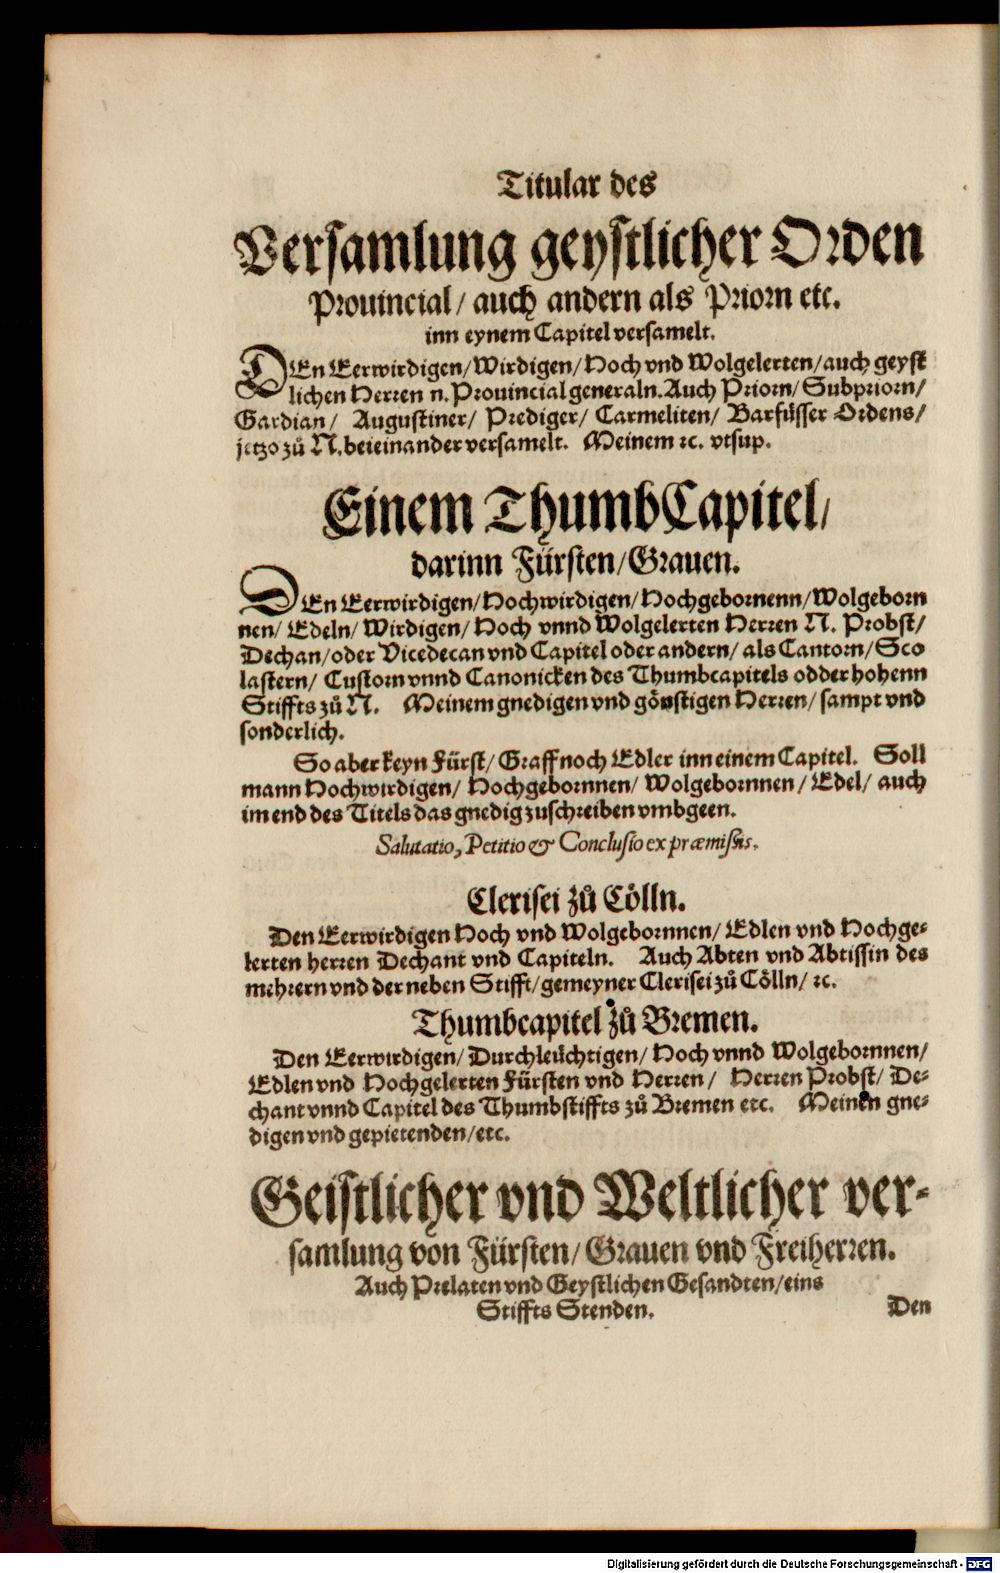 Titular des
Versamlung geystlicher Orden
Prouincial/ auch andern als Priorn etc.
inn eynem Capitel versamelt.
DEn Eerwirdigen/Wirdigen/Hoch vnd Wolgelerten/auch geyst
lichen Herren n. Prouincial generaln. Auch Priorn/ Subpriorn/
Gardian/ Augustiner/ Prediger/ Carmeliten/ Barfüsser Ordens/
jetzo zů N. beieinander versamelt. Meinem ꝛc. vtsup.
Einem ThumbCapitel/
darinn Fürsten/Grauen.
DEn Eerwirdigen/Hochwirdigen/Hochgebornenn/Wolgeborn
nen/ Edeln/ Wirdigen/ Hoch vnnd Wolgelerten Herren N. Probst/
Dechan/oder Vicedecan vnd Capitel oder andern/ als Cantorn/Sco
lastern/ Custorn vnnd Canonicken des Thumbcapitels odder hohenn
Stiffts zů N. Meinem gnedigen vnd gönstigen Herren/ sampt vnd
sonderlich.
So aber keyn Fürst/ Graff noch Edler inn einem Capitel. Soll
mann Hochwirdigen/ Hochgebornnen/ Wolgebornnen/ Edel/ auch
im end des Titels das gnedig zuschreiben vmbgeen.
Salutatio, Petitio & Conclusio ex præmissis.
Clerisei zů Cölln.
Den Eerwirdigen Hoch vnd Wolgebornnen/ Edlen vnd Hochge-
lerten herren Dechant vnd Capiteln. Auch Abten vnd Abtissin des
mehrern vnd der neben Stifft/gemeyner Clerisei zů Cölln/ ꝛc.
Thumbcapitel zů Bremen.
Den Eerwirdigen/ Durchleüchtigen/ Hoch vnnd Wolgebornnen/
Edlen vnd Hochgelerten Fürsten vnd Herren/ Herren Probst/ De-
chant vnnd Capitel des Thumbstiffts zů Bremen etc. Meinen gne-
digen vnd gepietenden/etc.
Geistlicher vnd Weltlicher ver-
samlung von Fürsten/Grauen vnd Freiherren.
Auch Prelaten vnd Geystlichen Gesandten/eins
Stiffts Stenden.
Den
Digitalisierung gefördert durch die Deutsche Forschungsgemeinschaft - DFG